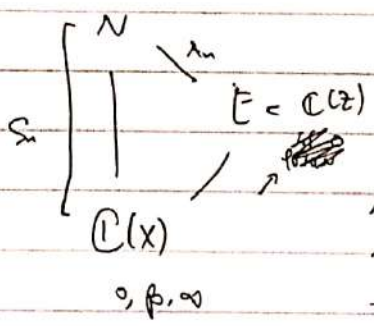 N
Sₙ
Aₙ
E = ℂ(z)
ℂ(X)
0, β, ∞